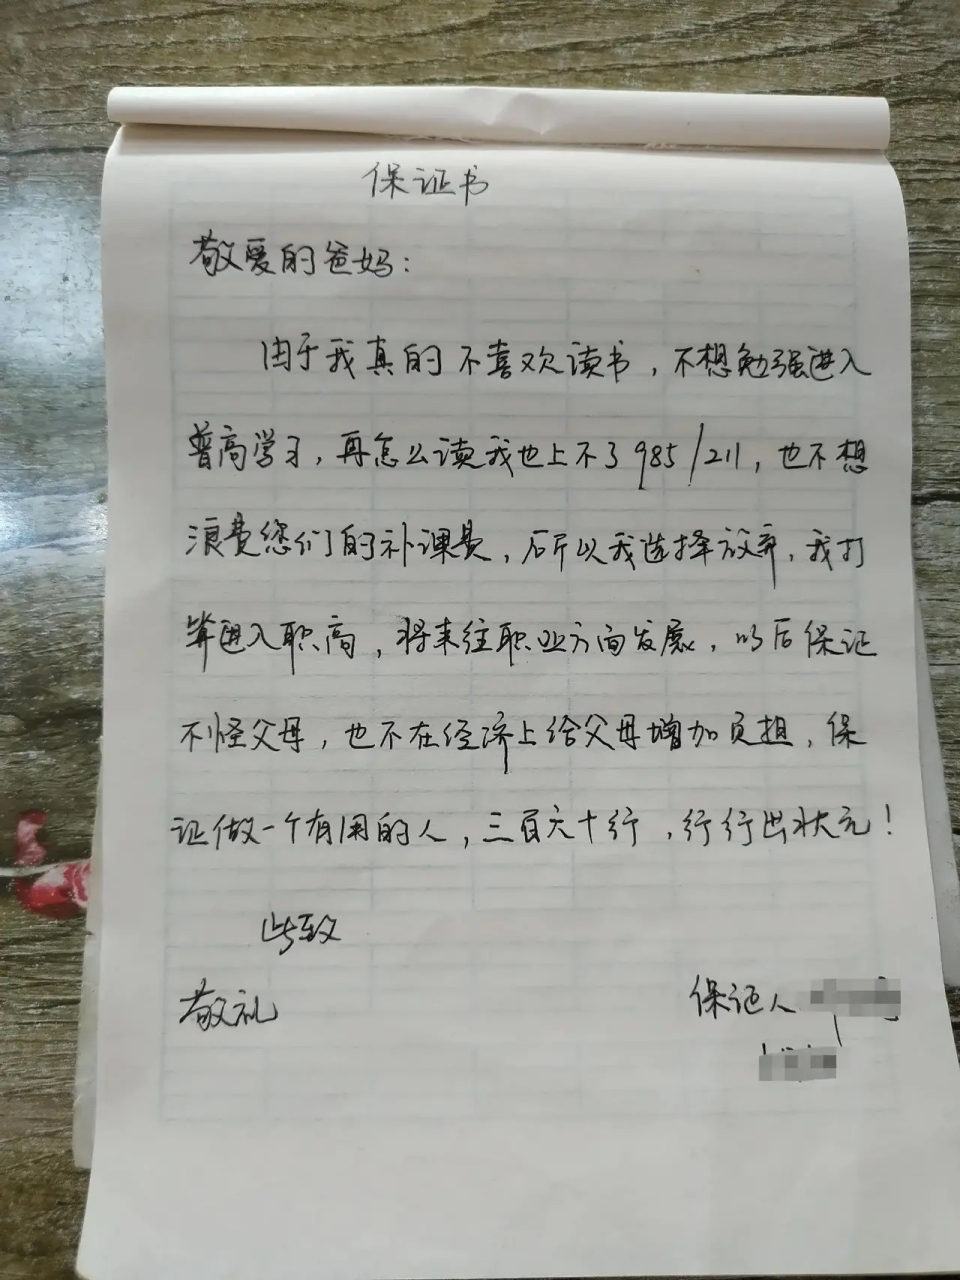 保证书
敬爱的爸妈：
由于我真的不喜欢读书，不想勉强进入
普高学习，再怎么读我也上不了985/211，也不想
浪费您们的补课费，所以我选择放弃，我打
算进入职高，将来往职业方向发展，以后保证
不怪父母，也不在经济上给父母增加负担，保
证做一个有用的人，三百六十行，行行出状元！
此致
敬礼
保证人